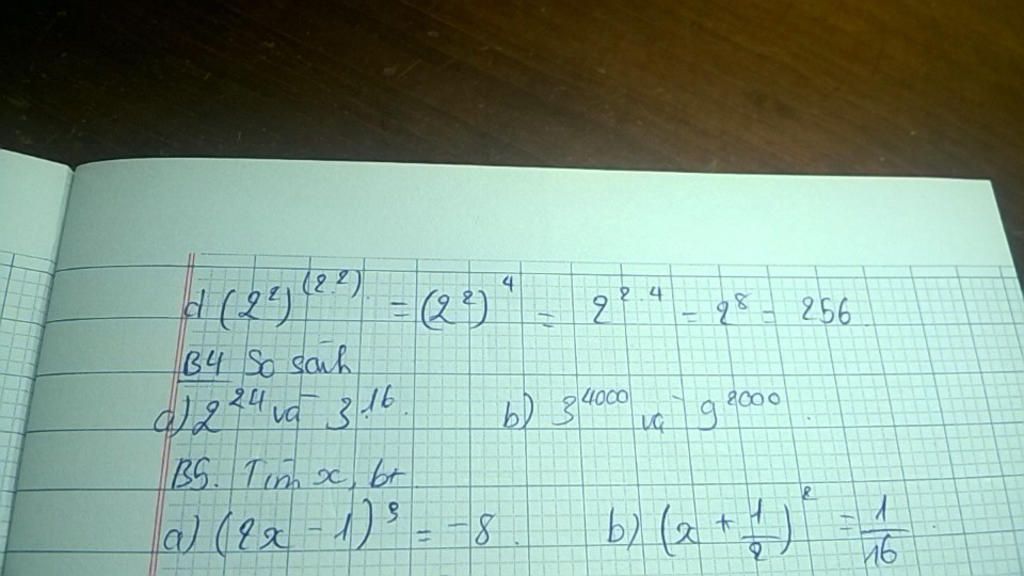 d (2²)^(2²) = (2²)⁴ = 2^2.4 = 2⁸ = 256.
B4 So sánh
a) 2²⁴ và 3¹⁶. b) 3⁴⁰⁰⁰ và 9²⁰⁰⁰.
B5. Tìm x, bt
a) (2x - 1)³ = -8. b) (x + 1/2)² = 1/16.